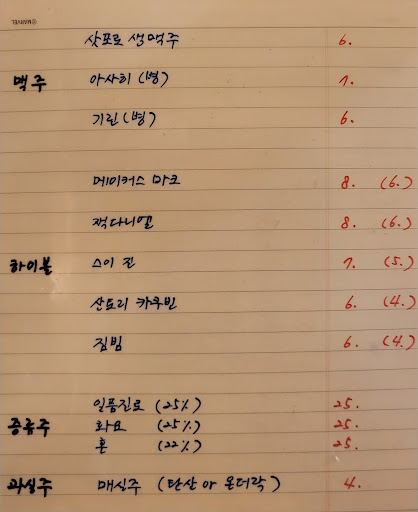 ©MARVEL
삿포로 생맥주 6.
맥주 아사히 (병) 7.
기린 (병) 6.
메이커스 마크 8. (6.)
잭다니엘 8. (6.)
하이볼 스이 진 7. (5.)
산토리 카쿠빈 6. (4.)
짐빔 6. (4.)
일품진로 (25%) 25.
증류주 화요 (25%) 25.
혼 (22%) 25.
과실주 매실주 (탄산 or 온더락) 4.